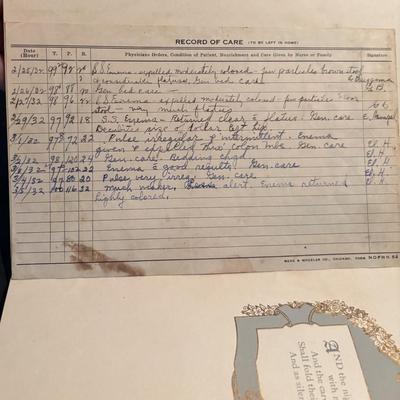 RECORD OF CARE (TO BE LEFT IN HOME)
Date (Hour) T. P. R. Physicians Orders, Condition of Patient, Nourishment and Care Given by Nurse or Family Signature
S.S. Enema - expelled moderately colored - few particles brown stool
considerable flatus. Gen. bed care
98 88 Gen bed care
98 96 S.S. enema expelled moderately colored - few particles
stool - very much flatus
2/29/32 97 92 18 S.S. Enema - Returned clear & flatus. Gen. care
Decubitis size of dollar
3/1/32 97 72 22 Pulse irregular & intermittent. Enema
given & expelled thro' colon tube. Gen. care El. H.
3/2/32 98 120 24 Gen. care. Bedding chgd El. H.
97 102 22 Enema & good results. Gen. care El. H.
3/4/32 97 80 20 Pulse very irreg. Gen. care El. H.
100 116 32 Much weaker, alert. Enema returned El. H.
highly colored.
CHICAGO, FORM NOPHN 52
AND the ni
with
And the car
Shall fold thei
And as silen